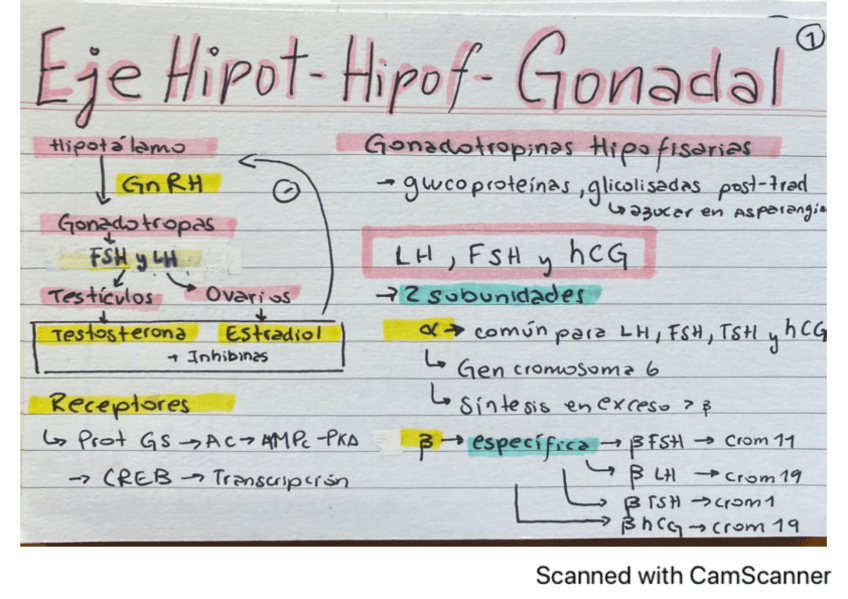 Eje Hipot-Hipof-Gonadal
1
Hipotálamo
GnRH
Gonadotropas
FSH y LH
Testículos
Ovarios
Testosterona
Estradiol
+ Inhibinas
Receptores
↳ Prot GS → AC → AMPc - PKA
→ CREB → Transcripción
Gonadotropinas Hipofisarias
→ glucoproteínas, glicolisadas post-trad
↳ azucar en Asparangin
LH, FSH y hCG
→ 2 subunidades
α → común para LH, FSH, TSH y hCG
↳ Gen cromosoma 6
↳ Síntesis en exceso > β
β → específica → β FSH → Crom 11
β LH → Crom 19
β TSH → crom 1
β hCG → crom 19
Scanned with CamScanner